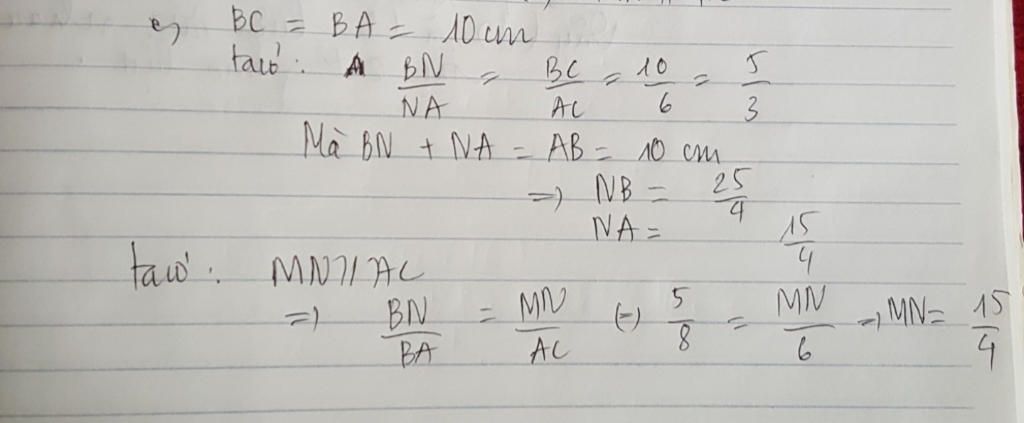 c, BC = BA = 10 cm
ta có: BN/NA = BC/AC = 10/6 = 5/3
Mà BN + NA = AB = 10 cm
=> NB = 25/4
NA = 15/4
ta có: MN // AC
=> BN/BA = MN/AC (=) 5/8 = MN/6 => MN = 15/4